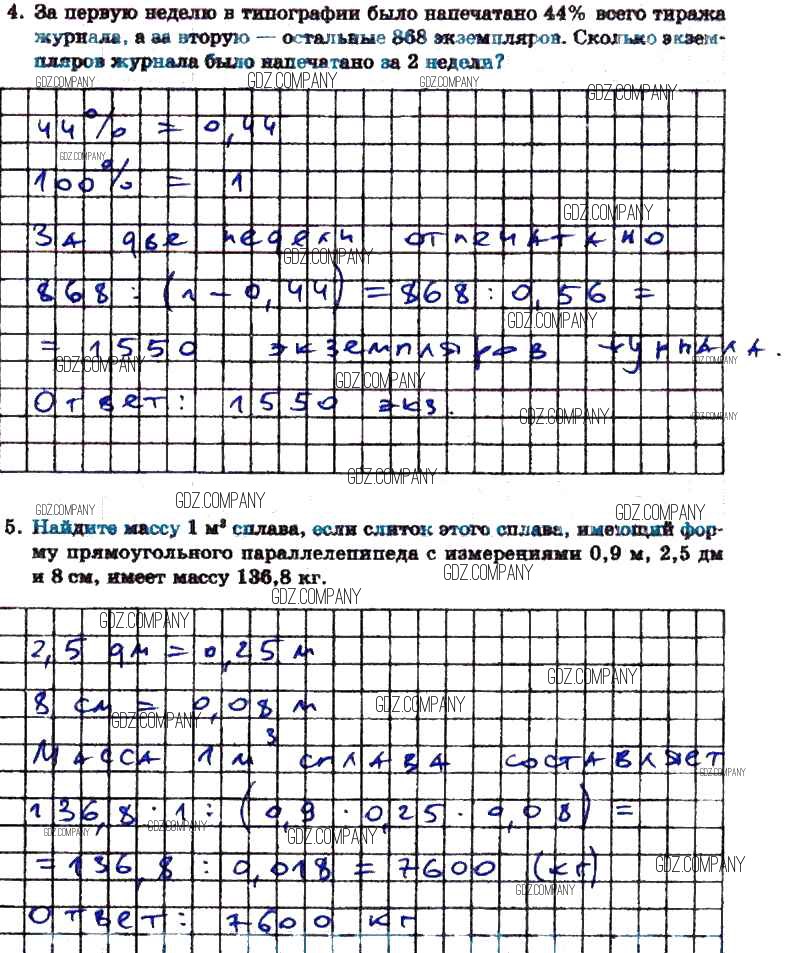 4. За первую неделю в типографии было напечатано 44% всего тиража
журнала, а за вторую — остальные 868 экземпляров. Сколько экзем-
пляров журнала было напечатано за 2 недели?
GDZ.COMPANY GDZ.COMPANY GDZ.COMPANY GDZ.COMPANY
44% = 0,44
GDZ.COMPANY
100% = 1
GDZ.COMPANY
За две недели отпечатано
GDZ.COMPANY
868 : (1 - 0,44) = 868 : 0,56 =
GDZ.COMPANY
= 1550 экземпляров журнала.
GDZ.COMPANY GDZ.COMPANY
GDZ.COMPANY
Ответ: 1550 экз.
GDZ.COMPANY GDZ.COMPANY
GDZ.COMPANY
GDZ.COMPANY GDZ.COMPANY GDZ.COMPANY
5. Найдите массу 1 м³ сплава, если слиток этого сплава, имеющий фор-
му прямоугольного параллелепипеда с измерениями 0,9 м, 2,5 дм
и 8 см, имеет массу 136,8 кг.
GDZ.COMPANY
GDZ.COMPANY
GDZ.COMPANY
2,5 дм = 0,25 м
GDZ.COMPANY
8 см = 0,08 м
GDZ.COMPANY GDZ.COMPANY
Масса 1 м³ сплава составляет
GDZ.COMPANY
136,8 · 1 : (0,9 · 0,25 · 0,08) =
GDZ.COMPANY GDZ.COMPANY GDZ.COMPANY
= 136,8 : 0,018 = 7600 (кг)
GDZ.COMPANY
GDZ.COMPANY
Ответ: 7600 кг